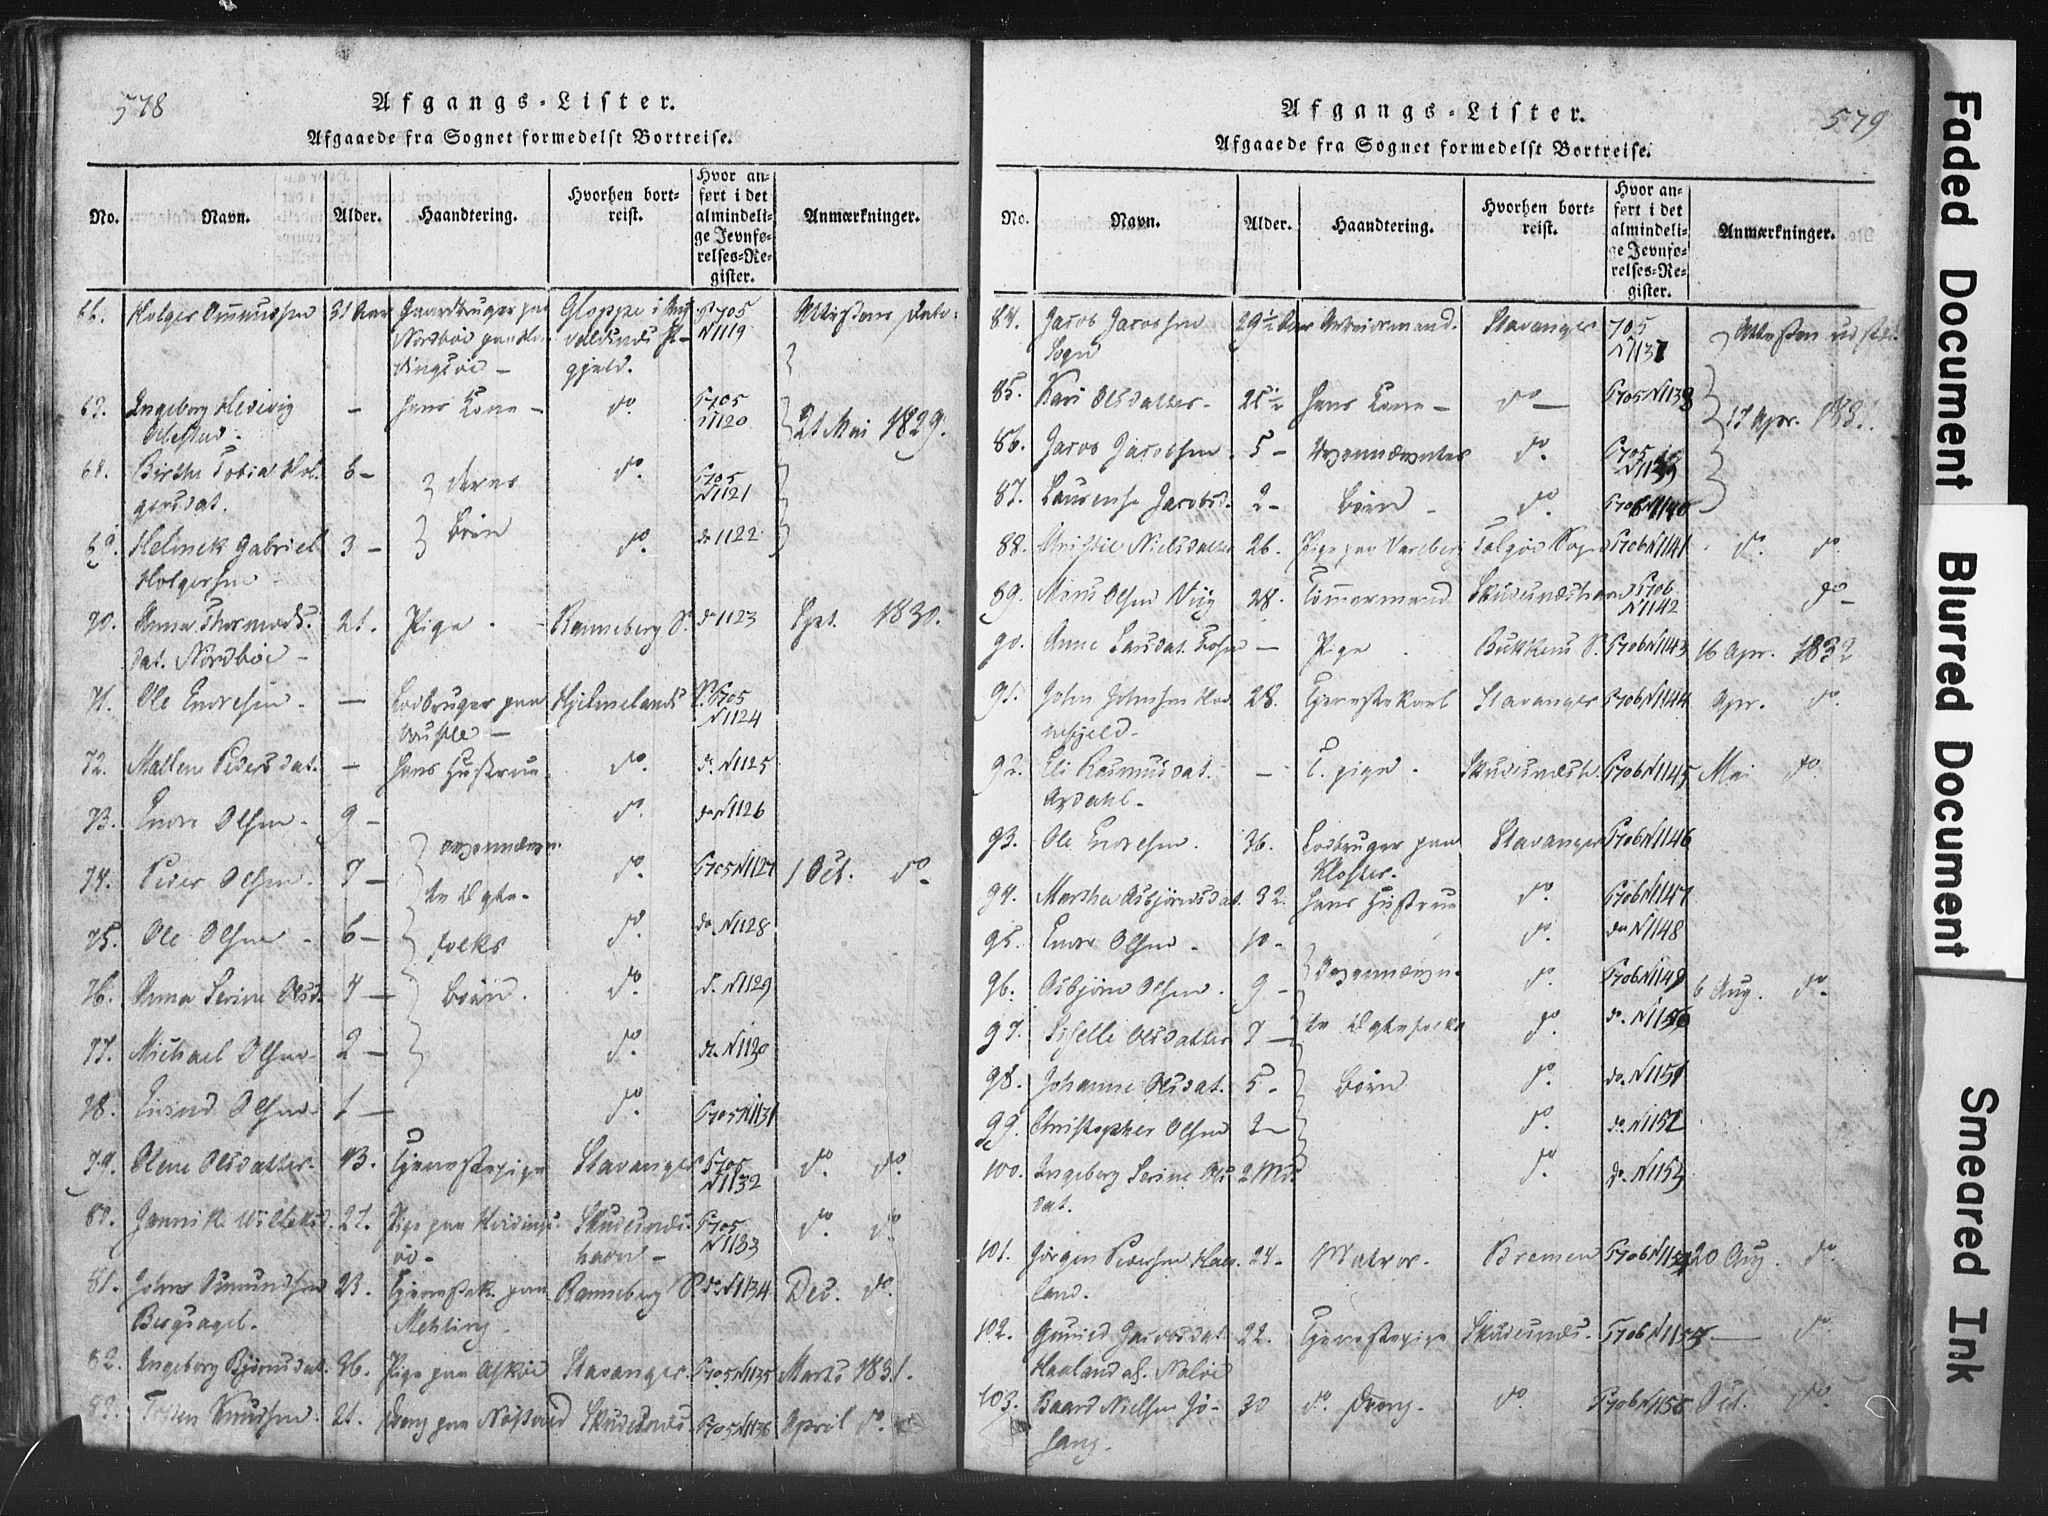 578
Afgangs-Lister.
Afgaaede fra Sognet formedelst Bortreise.
No. Navn. Alder. Haandtering. Hvorhen bortreist. Hvor anført i det almindelige Jevnførelses-Register. Anmærkninger.
66. Holger 31 Aar Gaardbruger paa Gloppe i P705 N1119 Attesten
Nordbøe paa
gjeld.
67. Ingeborg Hedevig - hans Kone - do. P705 N1120 21 Mai 1829.
68. Birthe Tobia Holgersdat. 6 - deres do. P705 N1121
69. Helmek Gabriel Holgersen 3 - Børn do. do 1122
70. Anna Thormodsdat. Nordbøe - 21. Pige - Renneberg P. do 1123 Sept. 1830.
71. Ole Endresen - - Lodbruger paa Hjelmelands P. P705 N1124
72. Mallene Pedersdat. - hans Hustrue do. do. N1125
73. Endre Olsen - 9 - do. do N1126
74. Peder Olsen. 7 - ovennævn- do. P705 N1127 1 Oct. do -
75. Ole Olsen - 6 - te Ægte- folks do. do N1128
76. Anna Serine Olsd. 7 - Børn. do. do. N1129
77. Michael Olsen - 2 - do. do. N1130
78. Eivind Olsen 1 - do. P705 N1131
79. Olene Olsdatter - 43. Tjenestepige Stavanger P705 N1132 do. do.
80. Jannike 27. Pige paa Skudesnæshavn - P705 N1133 do. do.
81. Johns Omundsen Bergsagel. 23. Tjenestek. paa Mehling. Renneberg P. do N1134 Dec. do.
82. Ingeborg Bjørnsdat. 36. Pige paa Askøe Stavanger. P705 N1135 Marts 1831.
83. Tosten Knudsen. 21. Dreng paa Skudesnæs. P705 N1136 April do.
579
Afgangs-Lister.
Afgaaede fra Sognet formedelst Bortreise.
No. Navn. Alder. Haandtering. Hvorhen bortreist. Hvor anført i det almindelige Jevnførelses-Register. Anmærkninger.
84. Jacob Jacobsen Sogn 29½ Aar Arbeidsmand. Stavanger 705 N1137 Attesten udst.
85. Kari Olsdatter - 25½ hans Kone - do - P705 N1138 17 Apr.
86. Jacob Jacobsen. 5 - Ovennævntes do. P705 N1139
87. Laurense Jacobsd. 2 - Børn - do. P706 N1140
88. Nielsdatter 26. Pige paa Varberg Talgøe Sogn P706 N1141 do. do.
89. Mons Olsen Viig 28. Tømmermand Skudesnæshavn P706 N1142 do -
90. Anne Larsdat. - Pige. Bukkens P. P706 N1143 16 Apr. 1832
91. John Johnsen 28. Tjenestekarl Stavanger P706 N1144 Apr. do.
92. Eli Rasmusdat. Aardahl - - T. pige. Skudesnæsh. P706 N1145 Mai do.
93. Ole Endresen. 36. Lodbruger paa Kloster. Stavanger P706 N1146
94. Martha Asbjørnsdat. 32. hans Hustrue do. P706 N1147
95. Endre Olsen - 10 - do. do N1148
96. Asbjørn Olsen. 9 - Ovennævn- do. P706 N1149 6 Aug. do.
97. Sisselle Olsdatter 7 - te Ægtefolks do. do. N1150
98. Johanne Olsdat. 5 - Børn do. do. N1151
99. Christopher Olsen 2 - do. do. N1152
100. Ingeborg Serine Olsdat. 2 Md. do. do. N1153
101. Jørgen Pedersen Haaland. 24 - Matros. Bremen P706 N1154 20 Aug. do.
102. Guried Jacobsdat. Haaland af. 22. Tjenestepige Skudesnæs. P706 N1155 - do.
103. Baard Nielsen 30 do Dreng. do. P706 N1156 Oct. do.
Faded Document Blurred Document Smeared Ink